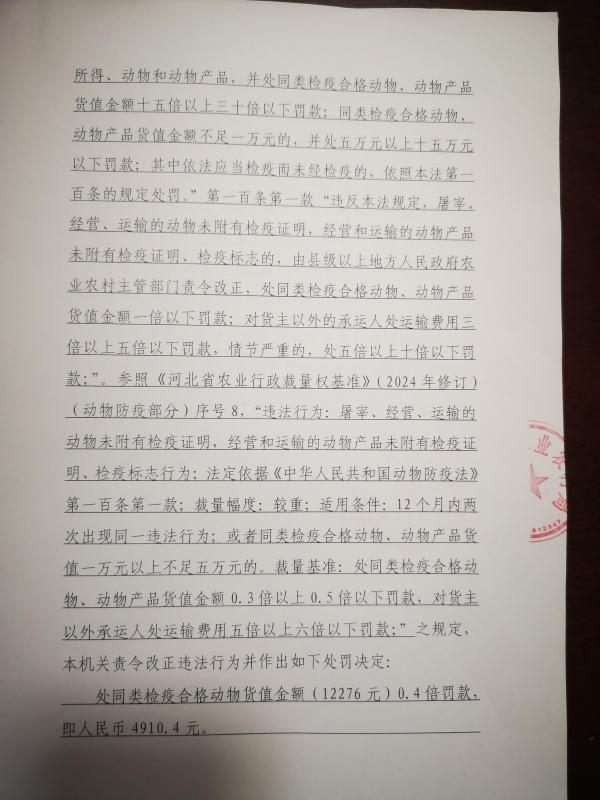 所得、动物和动物产品，并处同类检疫合格动物、动物产品
货值金额十五倍以上三十倍以下罚款；同类检疫合格动物、
动物产品货值金额不足一万元的，并处五万元以上十五万元
以下罚款；其中依法应当检疫而未经检疫的，依照本法第一
百条的规定处罚。”第一百条第一款“违反本法规定，屠宰、
经营、运输的动物未附有检疫证明，经营和运输的动物产品
未附有检疫证明、检疫标志的，由县级以上地方人民政府农
业农村主管部门责令改正，处同类检疫合格动物、动物产品
货值金额一倍以下罚款；对货主以外的承运人处运输费用三
倍以上五倍以下罚款，情节严重的，处五倍以上十倍以下罚
款；”。参照《河北省农业行政裁量权基准》（2024年修订）
（动物防疫部分）序号8，“违法行为：屠宰、经营、运输的
动物未附有检疫证明，经营和运输的动物产品未附有检疫证
明、检疫标志行为；法定依据《中华人民共和国动物防疫法》
第一百条第一款；裁量幅度：较重；适用条件：12个月内两
次出现同一违法行为；或者同类检疫合格动物、动物产品货
值一万元以上不足五万元的。裁量基准：处同类检疫合格动
物、动物产品货值金额0.3倍以上0.5倍以下罚款，对货主
以外承运人处运输费用五倍以上六倍以下罚款；”之规定，
本机关责令改正违法行为并作出如下处罚决定：
处同类检疫合格动物货值金额（12276元）0.4倍罚款，
即人民币4910.4元。